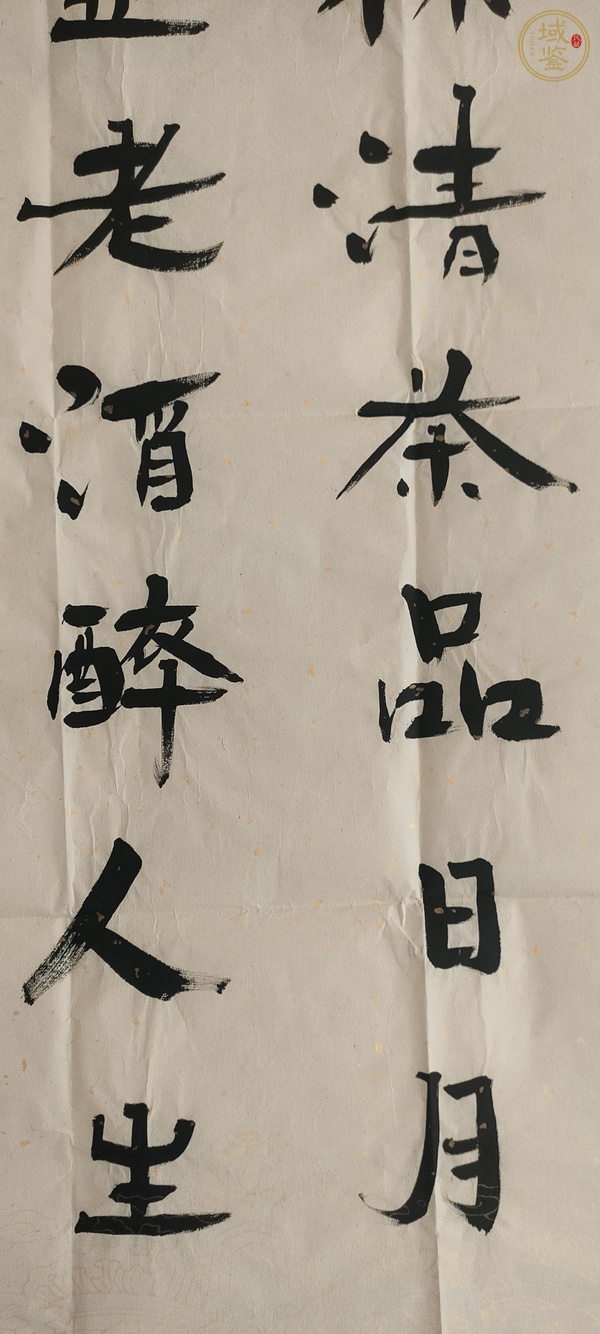 清茶品日月
老酒醉人生
域鉴